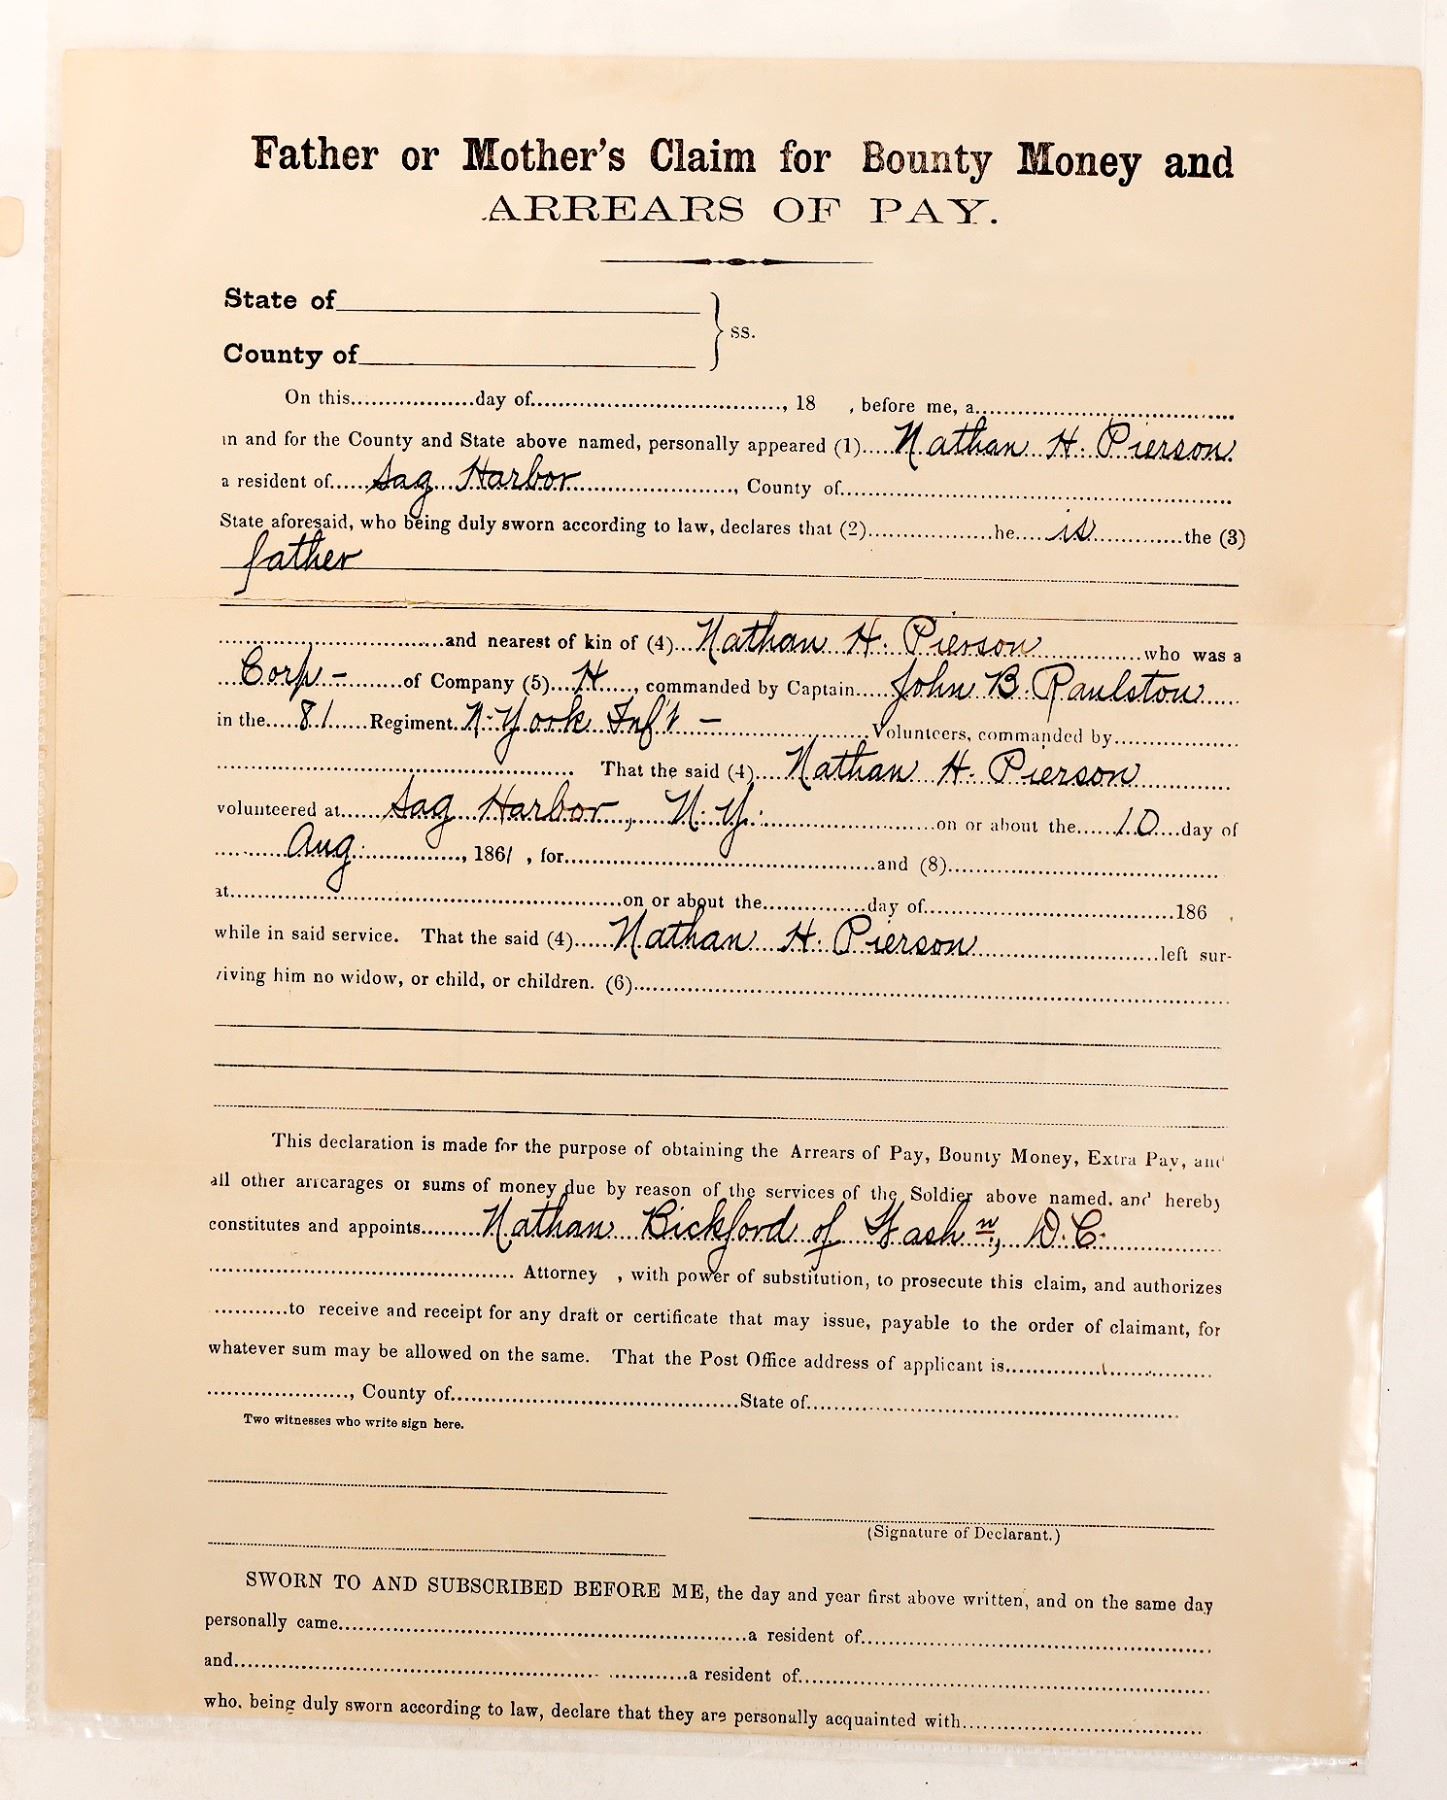 Father or Mother's Claim for Bounty Money and
ARREARS OF PAY.
State of
County of
ss.
On this..................day of....................................., 18 , before me, a......................................
in and for the County and State above named, personally appeared (1).....Nathan H. Pierson.
a resident of......Sag Harbor........................, County of............................................................
State aforesaid, who being duly sworn according to law, declares that (2)...................he....is..............the (3)
father
..................................and nearest of kin of (4)...Nathan H. Pierson...............who was a
...Corp –.........of Company (5)....H....., commanded by Captain.....John B. Raulston......
in the.....81.....Regiment.N. York Inf't –.......................Volunteers, commanded by...................
...................................................... That the said (4)....Nathan H. Pierson..............
volunteered at......Sag Harbor, N. Y...........................on or about the......10....day of
...........Aug..............., 1861 , for...............................................and (8).........................................
at...........................................................on or about the...............day of......................................186 .
while in said service. That the said (4)......Nathan H. Pierson............................left sur-
viving him no widow, or child, or children. (6)..........................................................................................
This declaration is made for the purpose of obtaining the Arrears of Pay, Bounty Money, Extra Pay, and
all other arrearages or sums of money due by reason of the services of the Soldier above named, and hereby
constitutes and appoints.........Nathan Bickford of Washn, D.C...................
.............................................. Attorney , with power of substitution, to prosecute this claim, and authorizes
...........to receive and receipt for any draft or certificate that may issue, payable to the order of claimant, for
whatever sum may be allowed on the same. That the Post Office address of applicant is...............................
....................., County of...........................................State of.........................................................
Two witnesses who write sign here.
(Signature of Declarant.)
SWORN TO AND SUBSCRIBED BEFORE ME, the day and year first above written, and on the same day
personally came..............................................................a resident of.....................................................
and.....................................................................a resident of..............................................................
who, being duly sworn according to law, declare that they are personally acquainted with.....................................